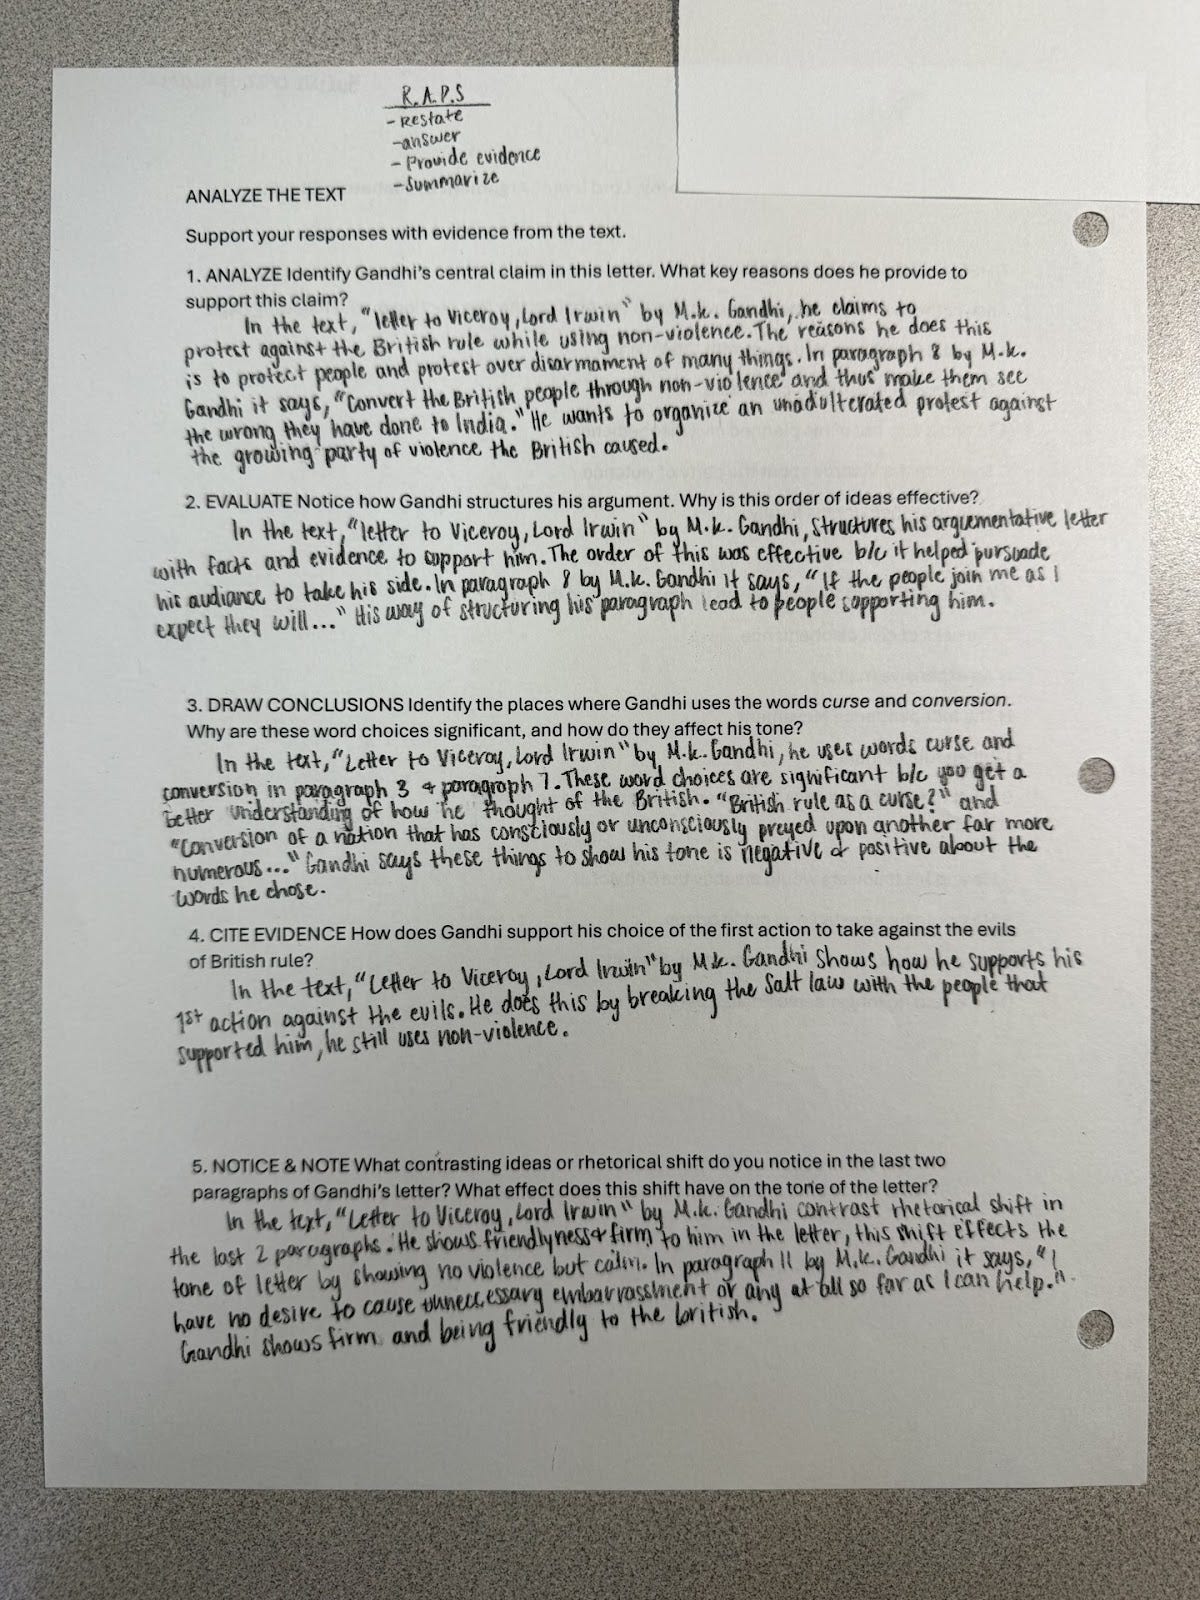 R.A.P.S
- Restate
- answer
- Provide evidence
- Summarize
ANALYZE THE TEXT
Support your responses with evidence from the text.
1. ANALYZE Identify Gandhi's central claim in this letter. What key reasons does he provide to
support this claim?
In the text, "letter to Viceroy, Lord Irwin" by M.k. Gandhi, he claims to
protest against the British rule while using non-violence. The reasons he does this
is to protect people and protest over disarmament of many things. In paragraph 8 by M.k.
Gandhi it says, "Convert the British people through non-violence and thus make them see
the wrong they have done to India." He wants to organize an unadulterated protest against
the growing party of violence the British caused.
2. EVALUATE Notice how Gandhi structures his argument. Why is this order of ideas effective?
In the text, "letter to Viceroy, Lord Irwin" by M.k. Gandhi, structures his arguementative letter
with facts and evidence to support him. The order of this was effective b/c it helped pursuade
his audiance to take his side. In paragraph 8 by M.k. Gandhi it says, "If the people join me as I
expect they will..." His way of structuring his paragraph lead to people supporting him.
3. DRAW CONCLUSIONS Identify the places where Gandhi uses the words curse and conversion.
Why are these word choices significant, and how do they affect his tone?
In the text, "Letter to Viceroy, Lord Irwin" by M.k. Gandhi, he uses words curse and
conversion in paragraph 3 & paragraph 7. These word choices are significant b/c you get a
better understanding of how he thought of the British. "British rule as a curse?" and
"Conversion of a nation that has consciously or unconsciously preyed upon another far more
numerous..." Gandhi says these things to show his tone is negative & positive about the
words he chose.
4. CITE EVIDENCE How does Gandhi support his choice of the first action to take against the evils
of British rule?
In the text, "Letter to Viceroy, Lord Irwin" by M.k. Gandhi shows how he supports his
1st action against the evils. He does this by breaking the Salt law with the people that
supported him, he still uses non-violence.
5. NOTICE & NOTE What contrasting ideas or rhetorical shift do you notice in the last two
paragraphs of Gandhi's letter? What effect does this shift have on the tone of the letter?
In the text, "Letter to Viceroy, Lord Irwin" by M.k. Gandhi contrast rhetorical shift in
the last 2 paragraphs. He shows friendlyness & firm to him in the letter, this shift effects the
tone of letter by showing no violence but calm. In paragraph 11 by M.k. Gandhi it says, "I
have no desire to cause unneccessary embarrassment or any at all so far as I can help."
Gandhi shows firm and being friendly to the british.